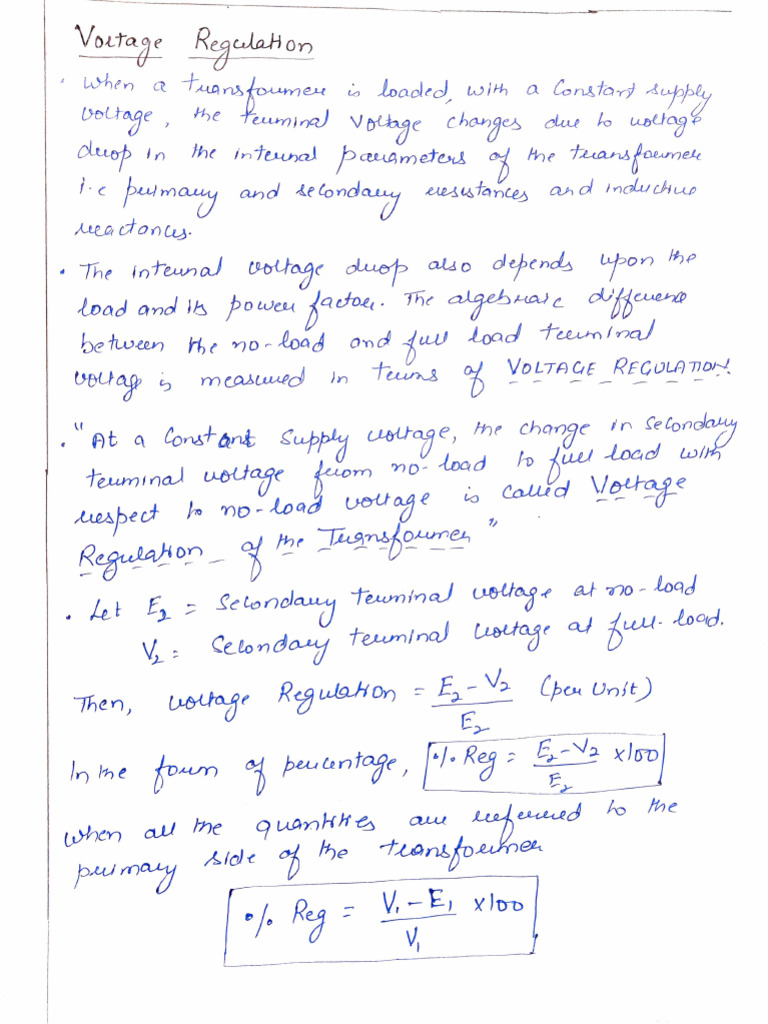 Voltage Regulation
• When a transformer is loaded, with a constant supply
voltage, the terminal voltage changes due to voltage
drop in the internal parameters of the transformer
i.e primary and secondary resistances and inductive
reactances.
• The internal voltage drop also depends upon the
load and its power factor. The algebraic difference
between the no-load and full load terminal
voltage is measured in terms of VOLTAGE REGULATION.
• "At a constant supply voltage, the change in secondary
terminal voltage from no-load to full load with
respect to no-load voltage is called Voltage
Regulation of the Transformer"
• Let E₂ = Secondary terminal voltage at no-load
V₂ = Secondary terminal voltage at full-load.
Then, voltage Regulation = (E₂ - V₂)/E₂ (per Unit)
In the form of percentage, % Reg = (E₂ - V₂)/E₂ × 100
When all the quantities are referred to the
primary side of the transformer
% Reg = (V₁ - E₁)/V₁ × 100